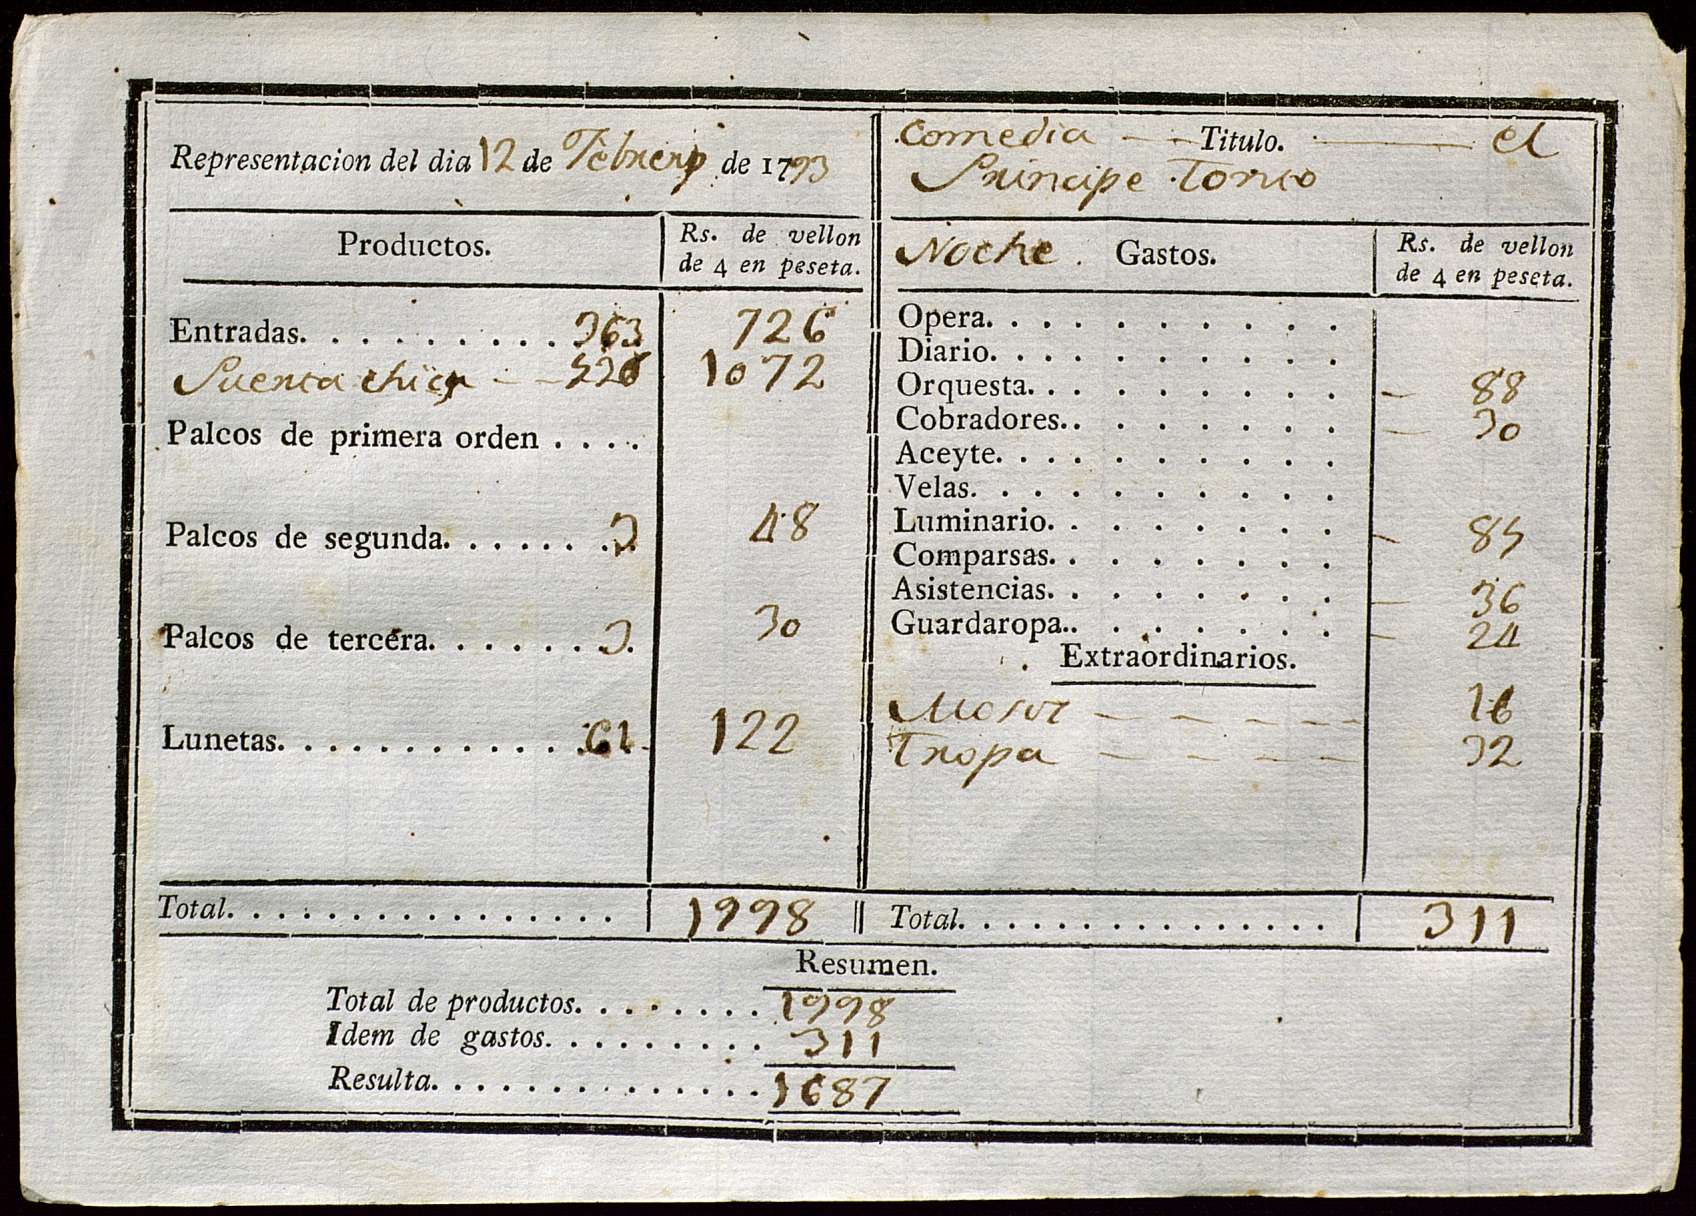 Representacion del dia 12 de Febrero de 1793
Productos.
Rs. de vellon
de 4 en peseta.
Entradas. . . . . . . . . . 363 726
Puerta chica - - 1072
Palcos de primera orden . . . .
Palcos de segunda. . . . . . . . 3 48
Palcos de tercera. . . . . . . 3. 30
Lunetas. . . . . . . . . . . . . 61 122
Total. . . . . . . . . . . . . . . . 1998
Comedia - - Titulo. - el
Principe Tonto
Noche. Gastos.
Rs. de vellon
de 4 en peseta.
Opera. . . . . . . . . .
Diario. . . . . . . . . .
Orquesta. . . . . . . . . - 88
Cobradores.. . . . . . . - 30
Aceyte. . . . . . . . . .
Velas. . . . . . . . . .
Luminario. . . . . . . . - 85
Comparsas. . . . . . . .
Asistencias. . . . . . . . - 36
Guardaropa.. . . . . . . - 24
Extraordinarios.
- - - - - 16
Tropa - - - - - 32
Total. . . . . . . . . . . . . . . 311
Resumen.
Total de productos. . . . . . . . 1998
Idem de gastos. . . . . . . . . 311
Resulta. . . . . . . . . . . . . . 1687